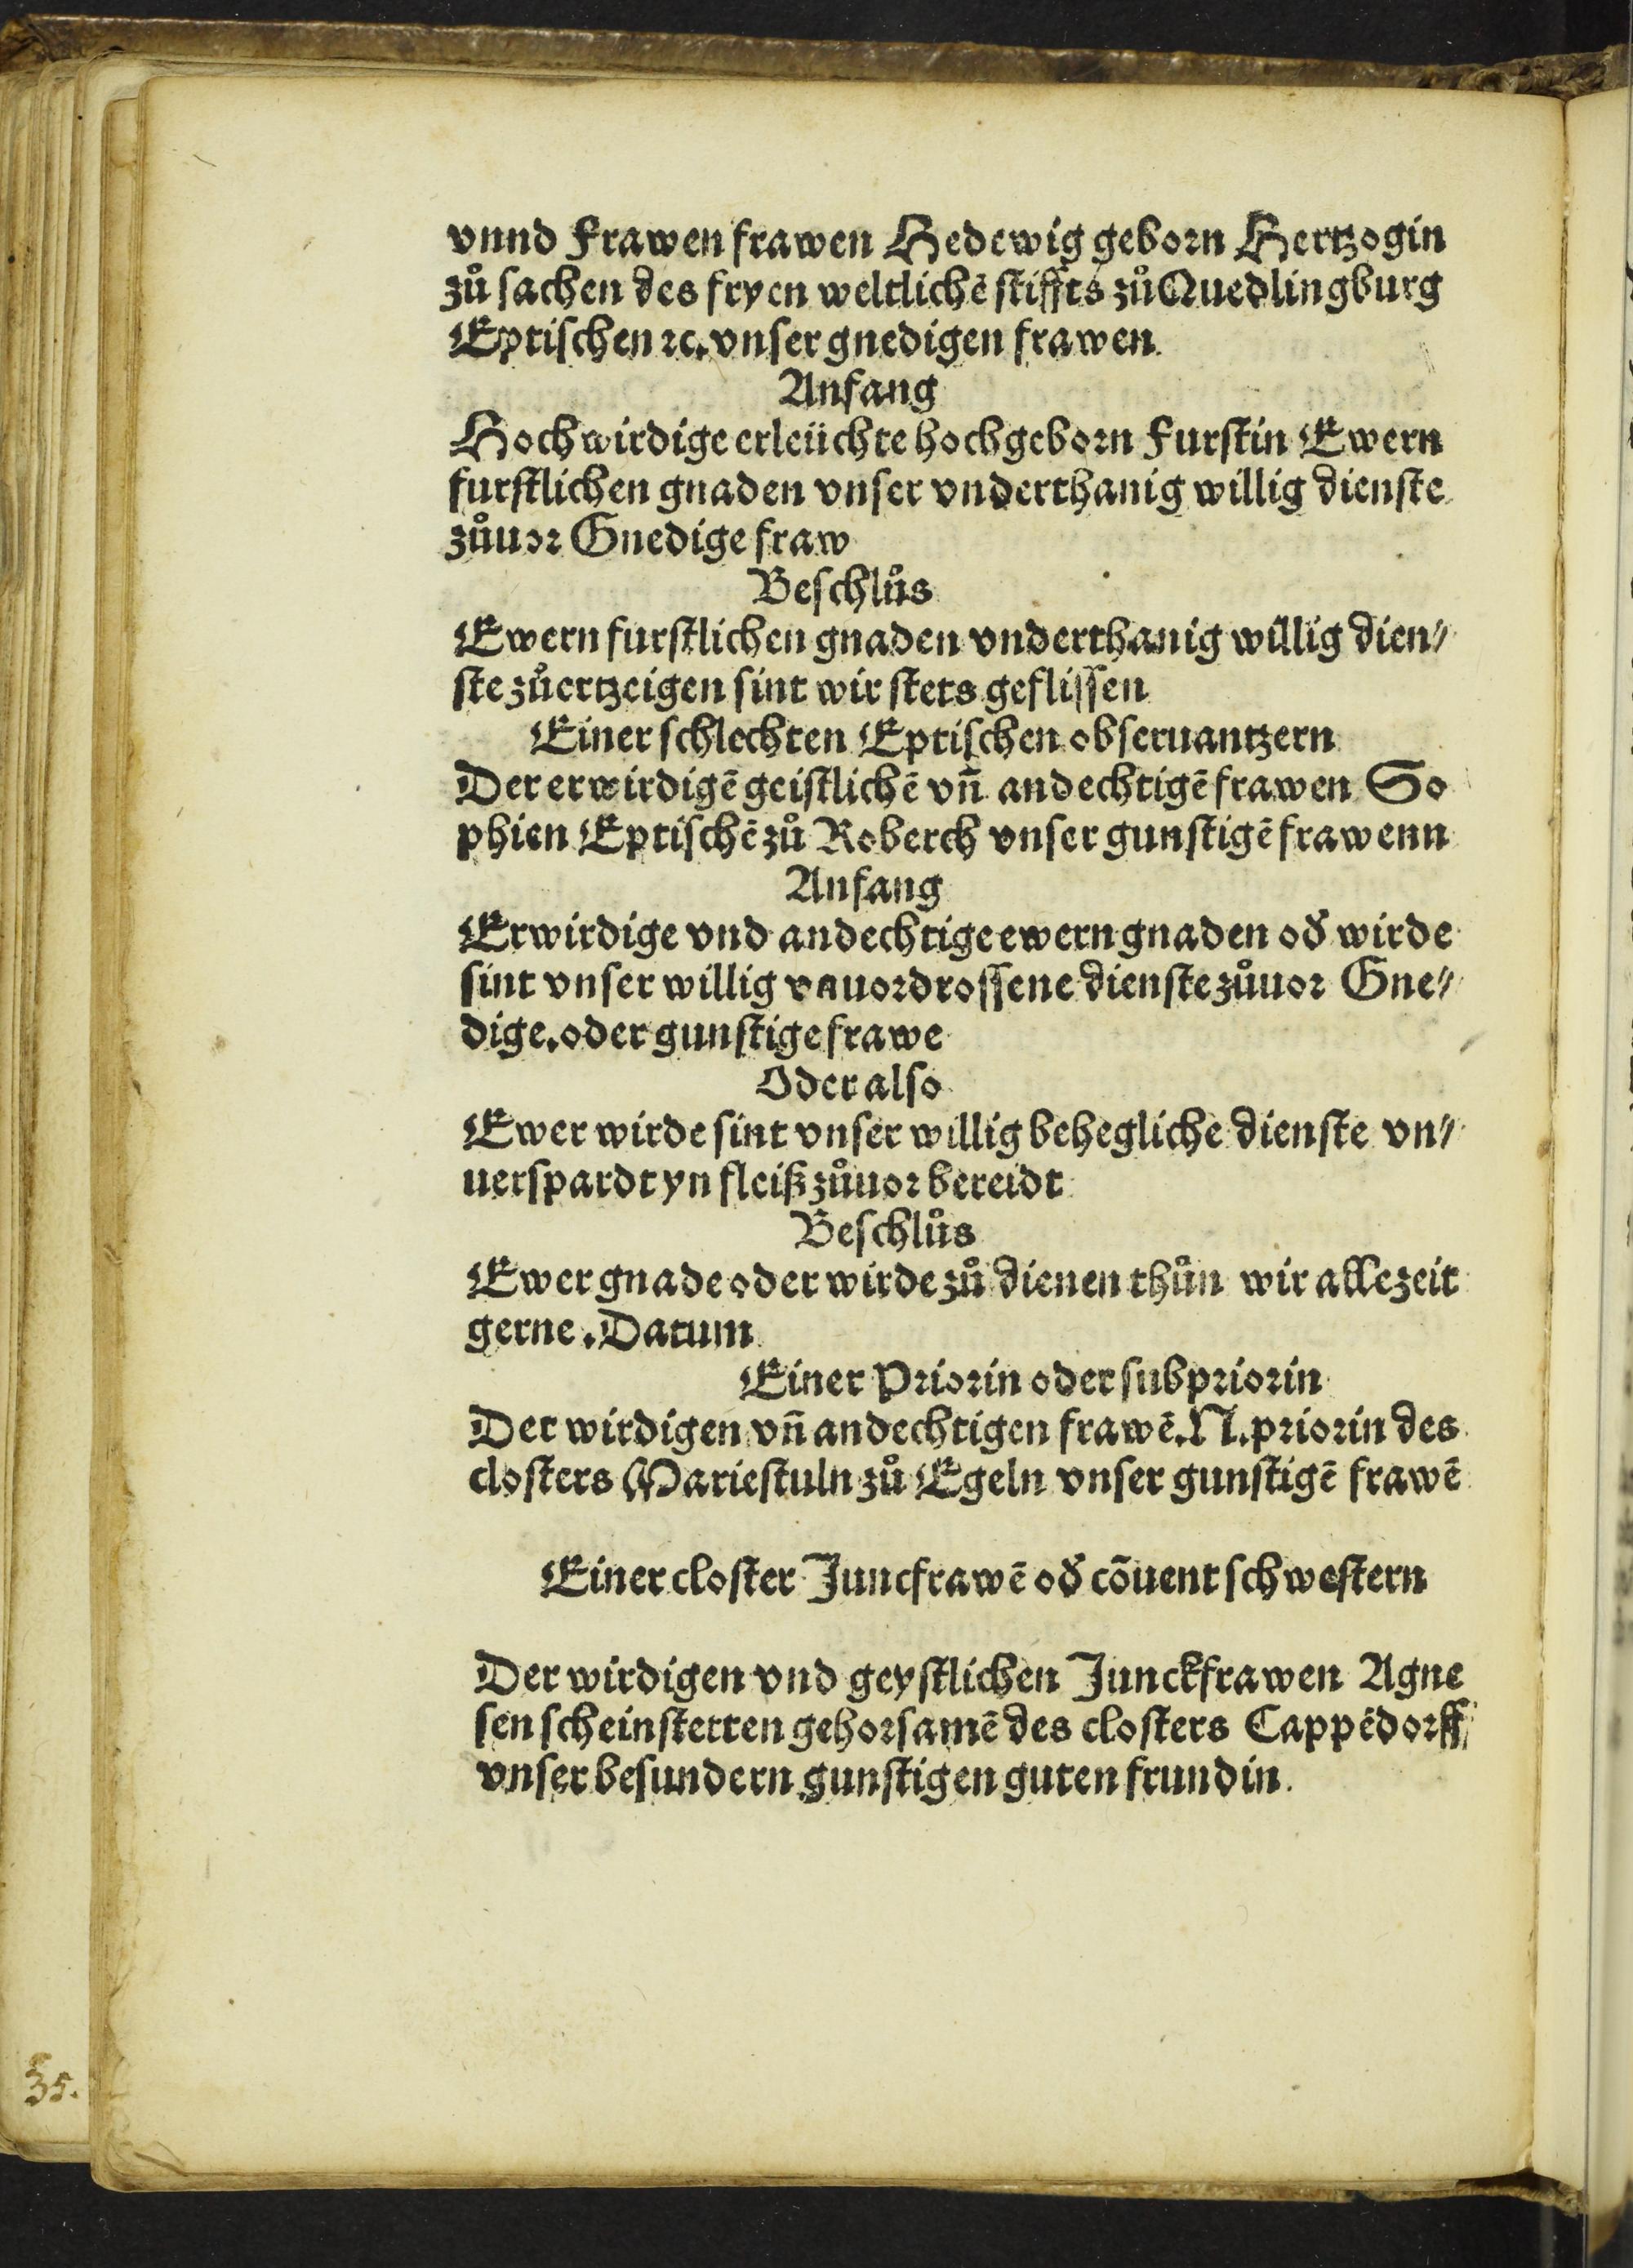 vnnd Frawen frawen Hedewig geborn Hertzogin
zů sachen des fryen weltlichē stiffts zů Quedlingburg
Eptischen ⁊c. vnser gnedigen frawen
Anfang
Hochwirdige erleüchte hochgeborn Furstin Ewern
furstlichen gnaden vnser vnderthanig willig dienste
zůuor Gnedige fraw
Beschlůs
Ewern furstlichen gnaden vnderthanig willig dien⸗
ste zů ertzeigen sint wir stets geflissen
Einer schlechten Eptischen obseruantzern
Der erwirdigē geistlichē vn̄ andechtigē frawen So
phien Eptischē zů Roberch vnser gunstigē frawenn
Anfang
Erwirdige vnd andechtige ewern gnaden od̕ wirde
sint vnser willig vnuordrossene dienste zůuor Gne⸗
dige. oder gunstige frawe
Oder also
Ewer wirde sint vnser willig behegliche dienste vn⸗
uerspardt yn fleiß zůuor bereidt
Beschlůs
Ewer gnade oder wirde zů dienen thůn wir allezeit
gerne. Datum
Einer Priorin oder subpriorin
Der wirdigen vn̄ andechtigen frawē. N. priorin des
closters Mariestuln zů Egeln vnser gunstigē frawē
Einer closter Juncfrawē od̕ cōuent schwestern
Der wirdigen vnd geystlichen Junckfrawen Agne
sen scheinsterren gehorsamē des closters Cappēdorff
vnser besundern gunstigen guten frundin.
35.